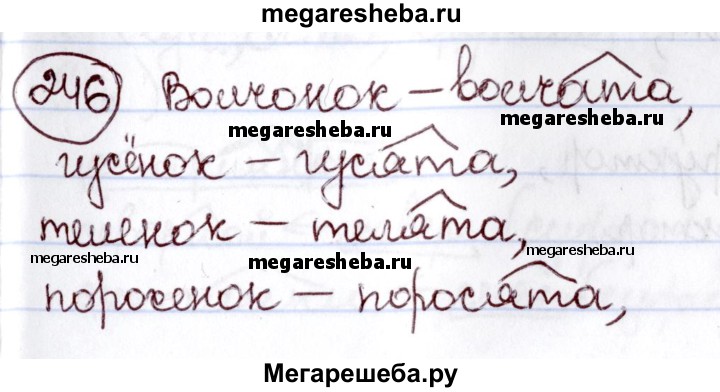 megaresheba.ru
246 Волчонок – волчата,
megaresheba.ru
megaresheba.ru
гусёнок – гусята,
теленок – телята,
megaresheba.ru
megaresheba.ru
megaresheba.ru
поросенок – поросята,
Мегарешеба.ру